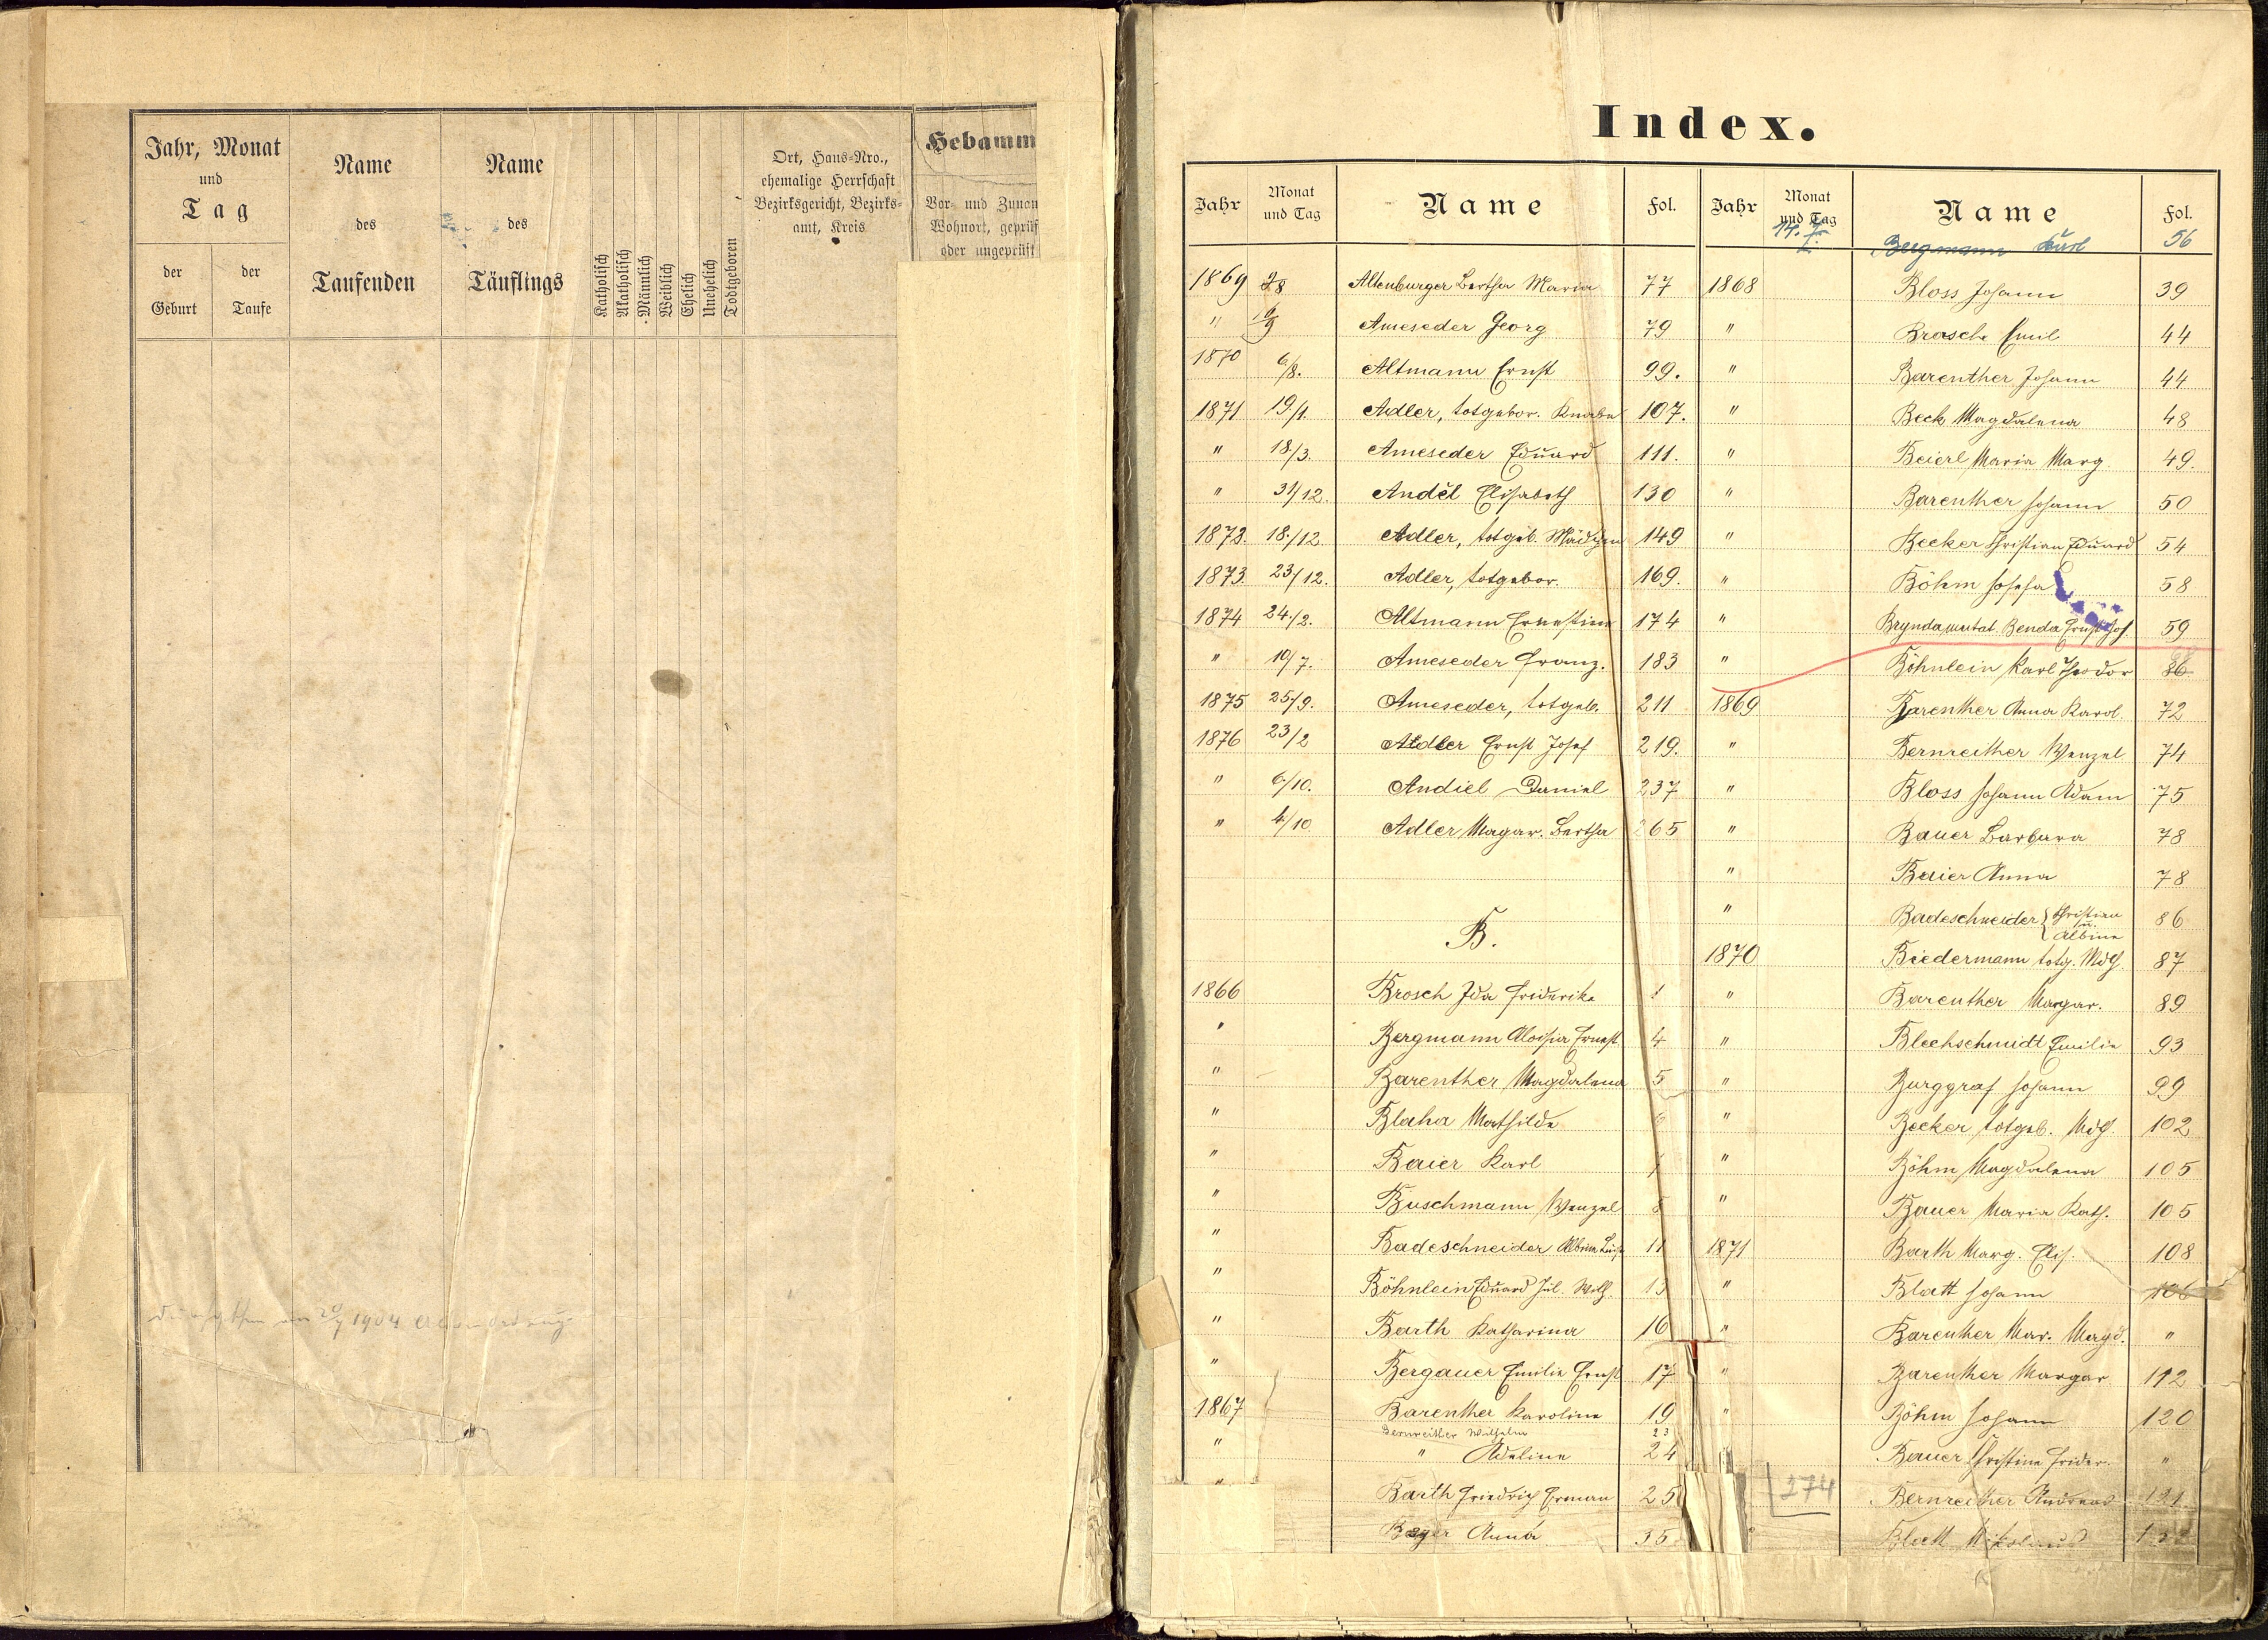 Jahr, Monat
und
Tag
der
Geburt
der
Taufe
Name
des
Taufenden
Name
des
Täuflings
Katholisch
Akatholisch
Männlich
Weiblich
Ehelich
Unehelich
Todtgeboren
Ort, Haus-Nro.,
ehemalige Herrschaft
Bezirksgericht, Bezirks-
amt, Kreis
Hebamm
Vor- und Zunam
Wohnort, geprüf
oder ungeprüft
1904
Index.
Jahr Monat und Tag Name Fol.
1869 2/8 Altenburger Bertha Maria 77
" 19/9 Ameseder Georg 79
1870 6/8. Altmann Ernst 99.
1871 19/1. Adler, totgebor. Knabe 107.
" 18/3. Ameseder Eduard 111.
" 31/12. Anděl Elisabeth 130
1872. 18./12. Adler, totgeb. Mädchen 149
1873. 23/12. Adler, totgebor. 169.
1874 24./2. Altmann Ernestine 174
" 10/7. Ameseder Franz. 183
1875 25/9. Ameseder, totgeb. 211
1876 23/2 Adler Ernst Josef 219.
" 6/10. Andiel Daniel 237
" 4/10 Adler Magar. Bertha 265
B.
1866 Brosch Ida Friderike 1
" Bergmann Aloisia Ernest 4
" Barenther Magdalena 5
" Blaha Mathilde 6
" Baier Karl 7
" Buschmann Wenzel 8
" Badeschneider Albine Luise 11
" Böhnlein Eduard Jul. Wilh. 13
" Barth Katharina 16
" Bergauer Emilie Ernst 17
1867 Barenther Karoline 19
Bernreither Wilhelm 23
" " Adeline 24
" Barth Friedrich Erman 25
Bayer Anna 35
Jahr Monat und Tag Name Fol.
14. 7. Bergmann Karl 56
1868 Bloss Johann 39
" Brosche Emil 44
" Barenther Johann 44
" Beck Magdalena 48
" Beierl Maria Marg. 49.
" Barenther Johann 50
" Becker Christian Eduard 54
" Böhm Josefa 58
" Brynda mutat. Benda Ernst Jos. 59
" Böhnlein Karl Theodor 86
1869 Barenther Anna Karol. 72
" Bernreither Wenzel 74
" Bloss Johann Adam 75
" Bauer Barbara 78
" Baier Anna 78
" Badeschneider { Christian u. Albine 86
1870 Biedermann totg. Mdch. 87
" Barenther Margar. 89
" Blechschmidt Emilie 93
" Burggraf Johann 99
" Becker totgeb. Mdch. 102
" Böhm Magdalena 105
" Bauer Maria Kath. 105
1871 Barth Marg. Elis. 108
" Blatt Johann 106
" Barenther Mar. Magd. "
" Barenther Margar. 112
" Böhm Johann 120
Bauer Christine Frider. "
274 Bernreither Andreas 121
Blatt Nikolaus